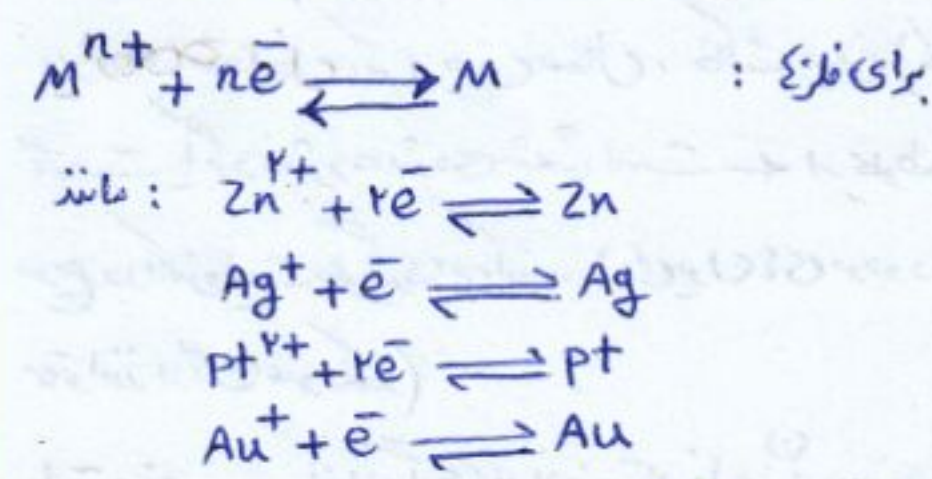 برای فلز ها : M^n+ + nē ⇌ M
مانند : Zn^۲+ + ۲ē ⇌ Zn
Ag^+ + ē ⇌ Ag
Pt^۲+ + ۲ē ⇌ Pt
Au^+ + ē ⇌ Au